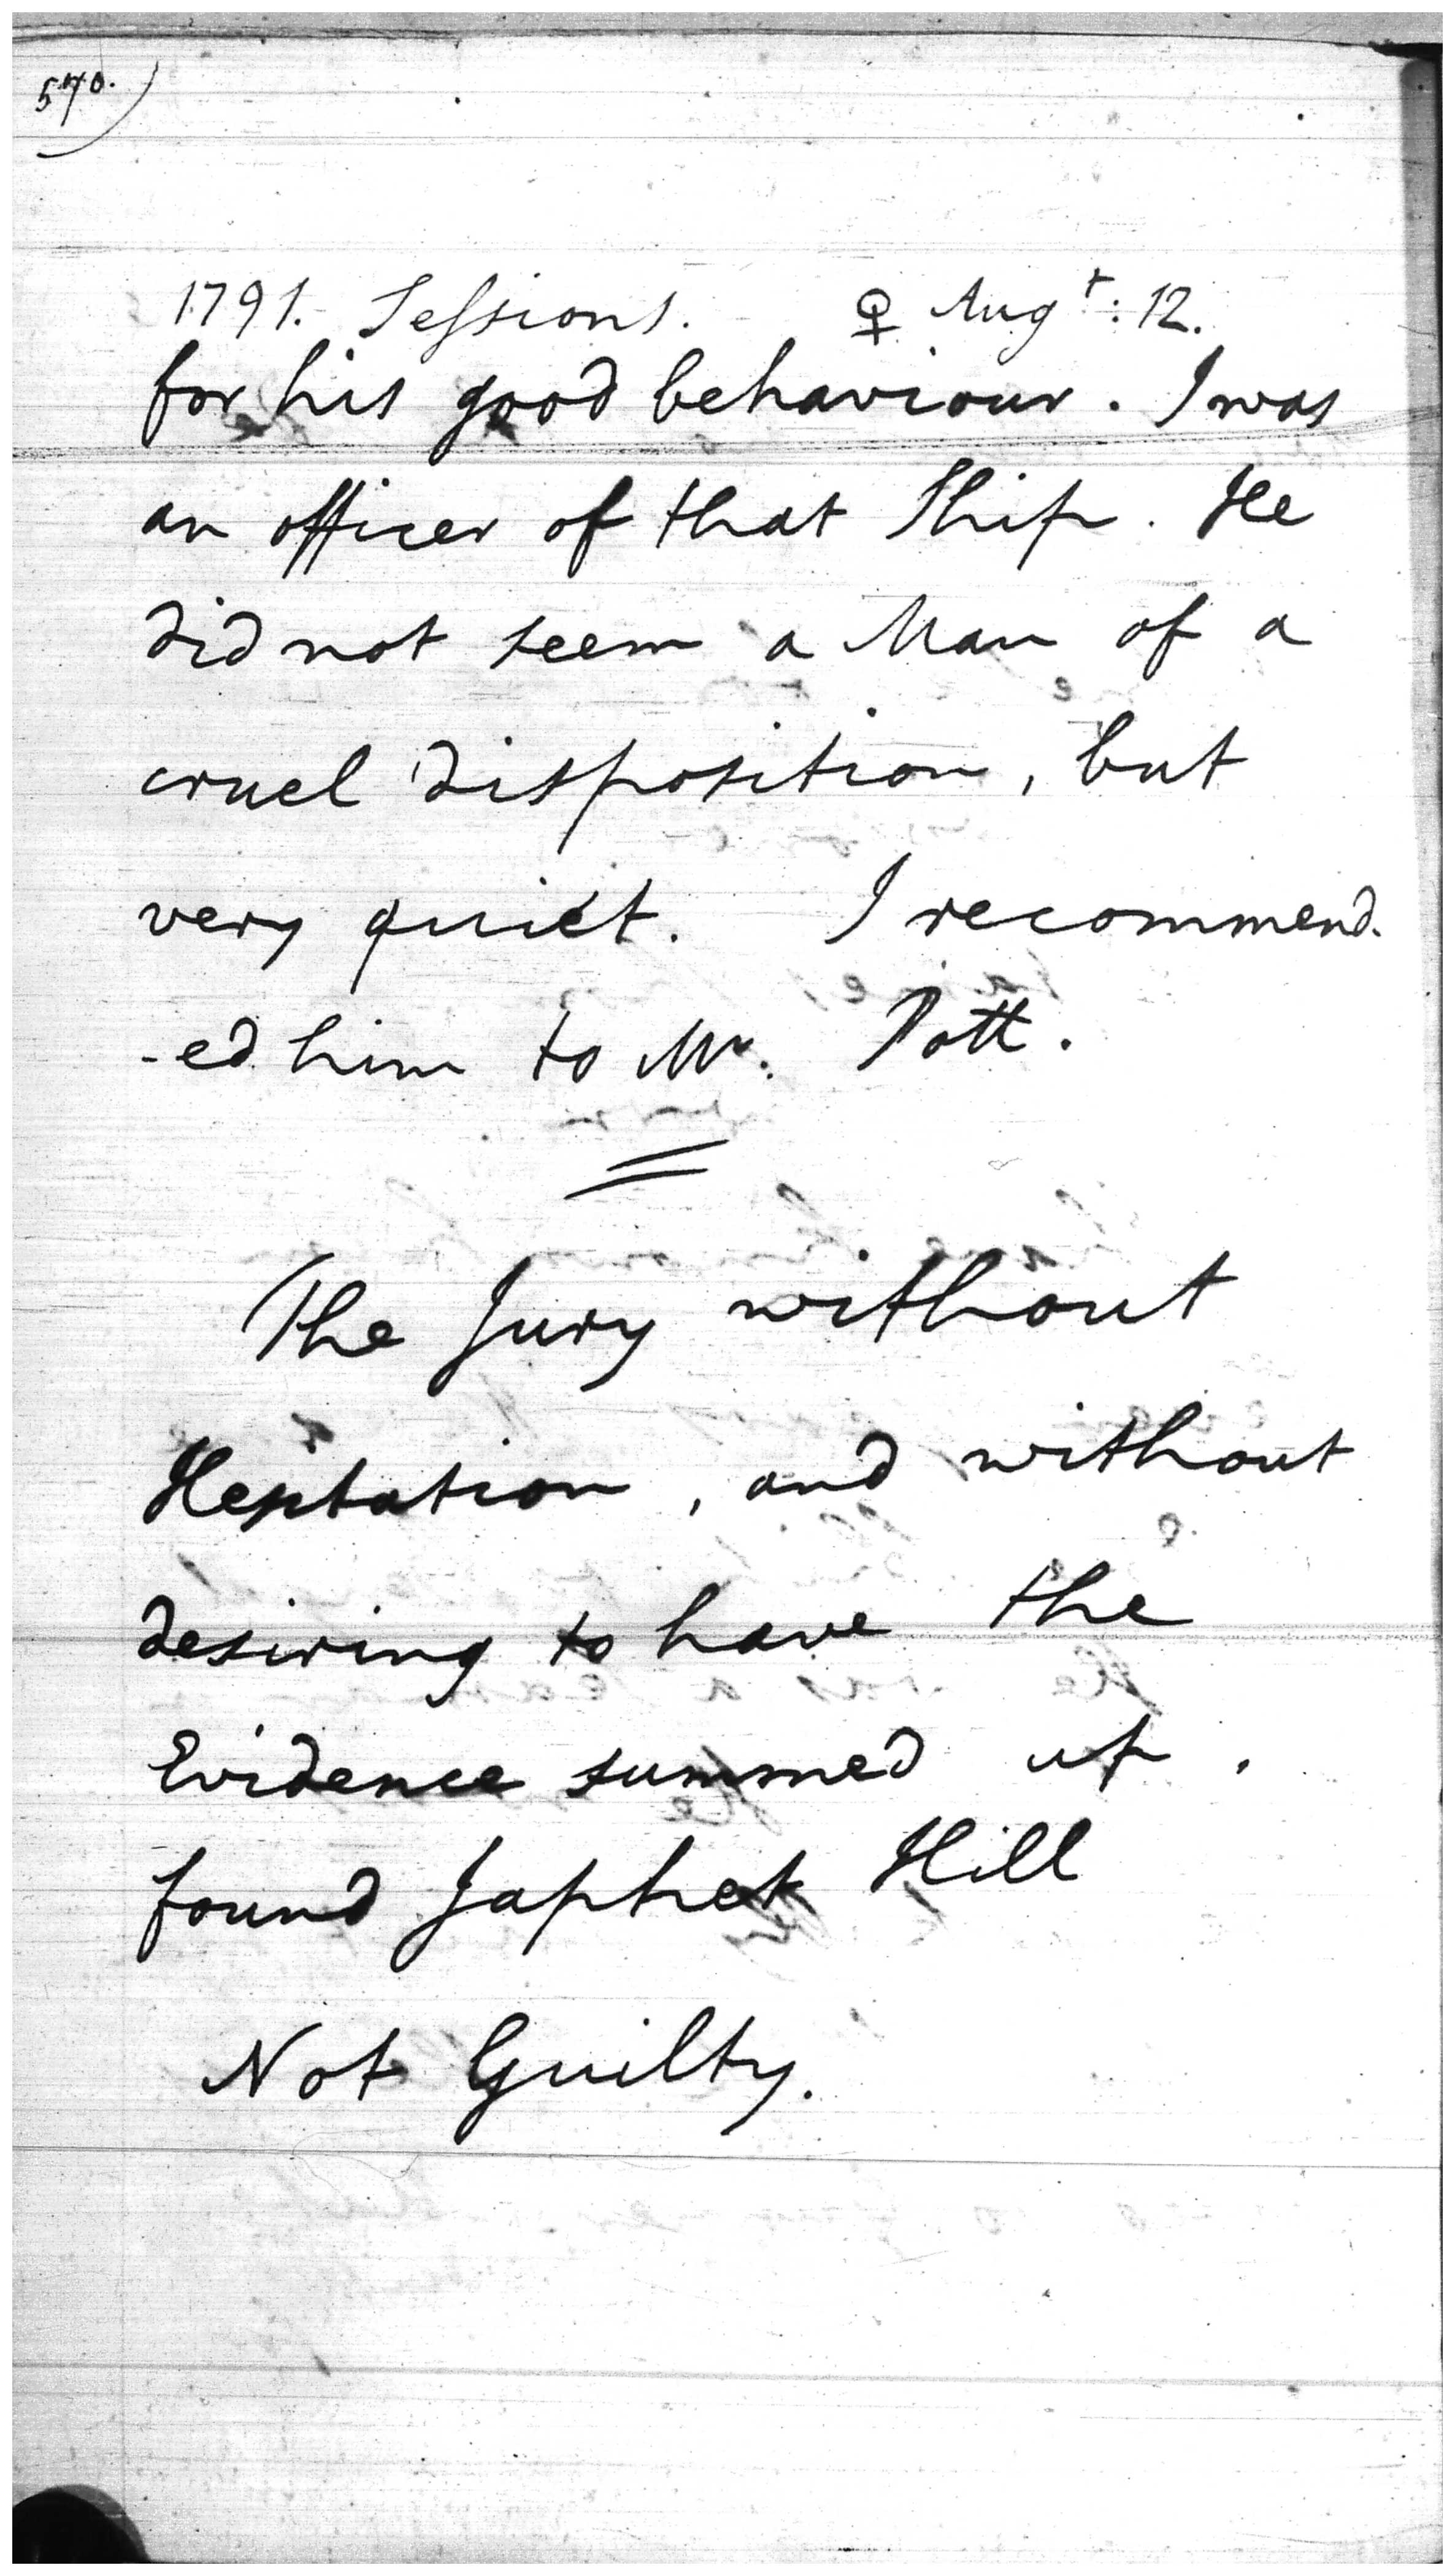 570.)
1791. Sessions. ♀ Augt: 12.
for his good behaviour. I was
an officer of that Ship. He
did not seem a Man of a
cruel disposition, but
very quiet. I recommend.
-ed him to Mr. Pott.
The Jury without
Hesitation, and without
desiring to have the
Evidence summed up,
found Japhet Hill
Not Guilty.